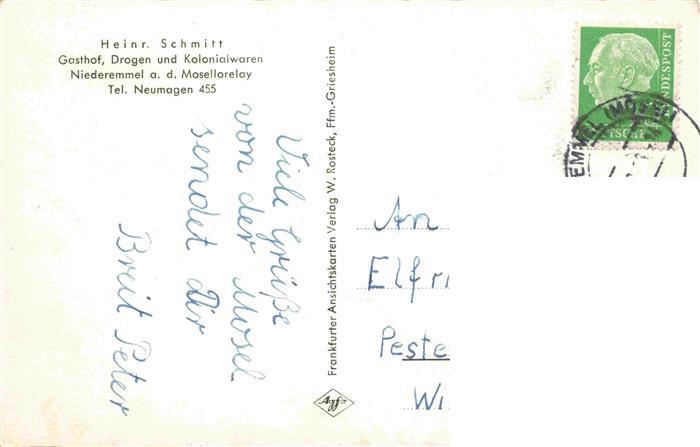 Heinr. Schmitt
Gasthof, Drogen und Kolonialwaren
Niederemmel a. d. Mosellorelay
Tel. Neumagen 455
Viele Grüße
von der Mosel
sendet dir
Breit Peter
Frankfurter Ansichtskarten Verlag W. Rosteck, Ffm.-Griesheim
Agfa
An
Elfri
Peste
Wi